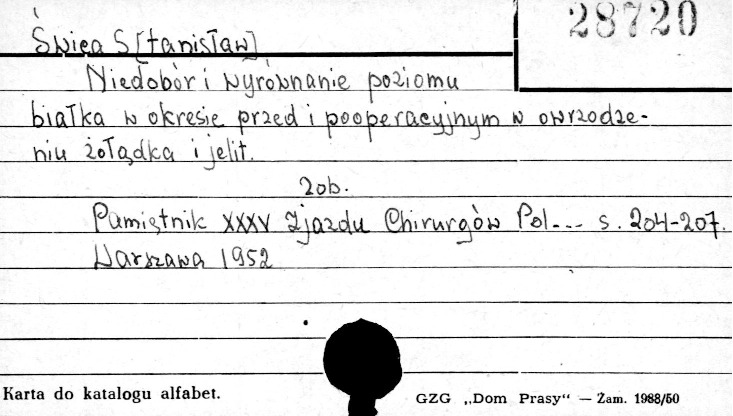 28720
Święa S[tanisław]
Niedobór i wyrównanie poziomu
białka w okresie przed i pooperacyjnym w owrzodze-
niu żołądka i jelit.
zob.
Pamiętnik XXXV Zjazdu Chirurgów Pol--- s. 204-207.
Warszawa 1952
Karta do katalogu alfabet.
GZG „Dom Prasy“ — Zam. 1988/50